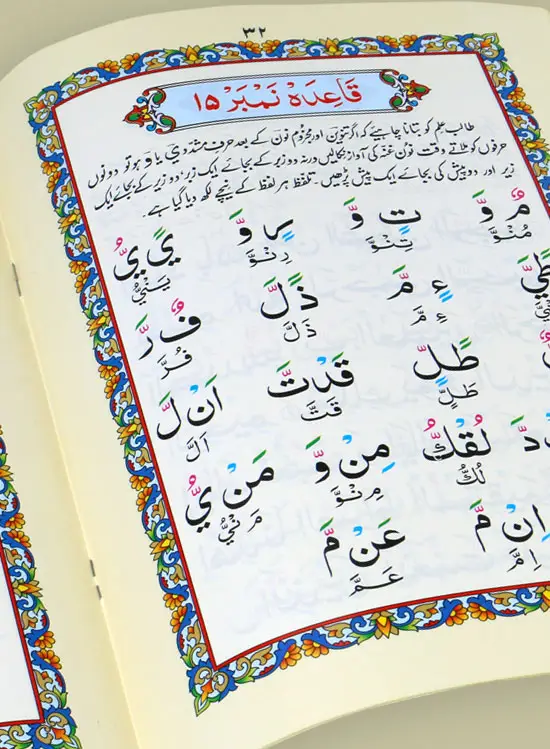 ۳۲
قَاعِدَہ نَمبَر ۱۵
طالب علم کو بتانا چاہیے کہ اگر تنوین اور مجزوم نون کے بعد حرف مشدد ی یا و ہو تو دونوں
حرفوں کو ملاتے وقت نون غنہ کی آواز نکالیں ورنہ دو زبر کے بجائے ایک زبر، دو زیر کے بجائے ایک
زیر اور دو پیش کی بجائے ایک پیش پڑھیں۔ تلفظ ہر لفظ کے نیچے لکھ دیا گیا ہے۔
مٌ وَّ تٍ وَّ رٍ وَّ يً يُّ
مُنْوَّ تِنْوَّ رِنْوَّ يَنْيُّ
ءٍ مَّ ذً لَّ فٌ رَّ
ءِ مَّ ذَلَّ فُرَّ
طً لٍّ قَدْ تَّ اَنْ لَّ
طَلٍّ قَتَّ اَلَّ
لُقْكُّ مِنْ وَّ مَنْ يُّ
لُكُّ مِنْوَّ مَنْيُّ
اِنْ مَّ عَنْ مَّ
اِمَّ عَمَّ